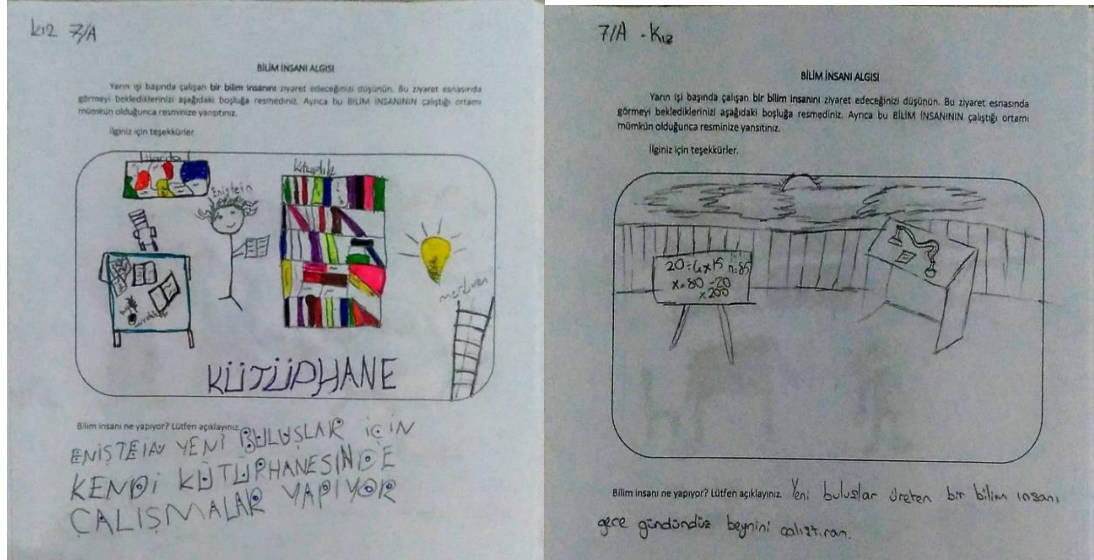 kız 7/A
BİLİM İNSANI ALGISI
Yarın işi başında çalışan bir bilim insanını ziyaret edeceğinizi düşünün. Bu ziyaret esnasında
görmeyi beklediklerinizi aşağıdaki boşluğa resmediniz. Ayrıca bu BİLİM İNSANININ çalıştığı ortamı
mümkün olduğunca resminize yansıtınız.
İlginiz için teşekkürler.
Eniştein
Kitaplık
merdiven
KÜTÜPHANE
Bilim insanı ne yapıyor? Lütfen açıklayınız.
ENİŞTEİN YENİ BULUŞLAR İÇİN
KENDİ KÜTÜPHANESİNDE
ÇALIŞMALAR YAPIYOR
7/A - Kız
BİLİM İNSANI ALGISI
Yarın işi başında çalışan bir bilim insanını ziyaret edeceğinizi düşünün. Bu ziyaret esnasında
görmeyi beklediklerinizi aşağıdaki boşluğa resmediniz. Ayrıca bu BİLİM İNSANININ çalıştığı ortamı
mümkün olduğunca resminize yansıtınız.
İlginiz için teşekkürler.
20÷4x15 n=85
x=80 -20
x200
Bilim insanı ne yapıyor? Lütfen açıklayınız. Yeni buluşlar üreten bir bilim insanı
gece gündündüz beynini çalıştıran.